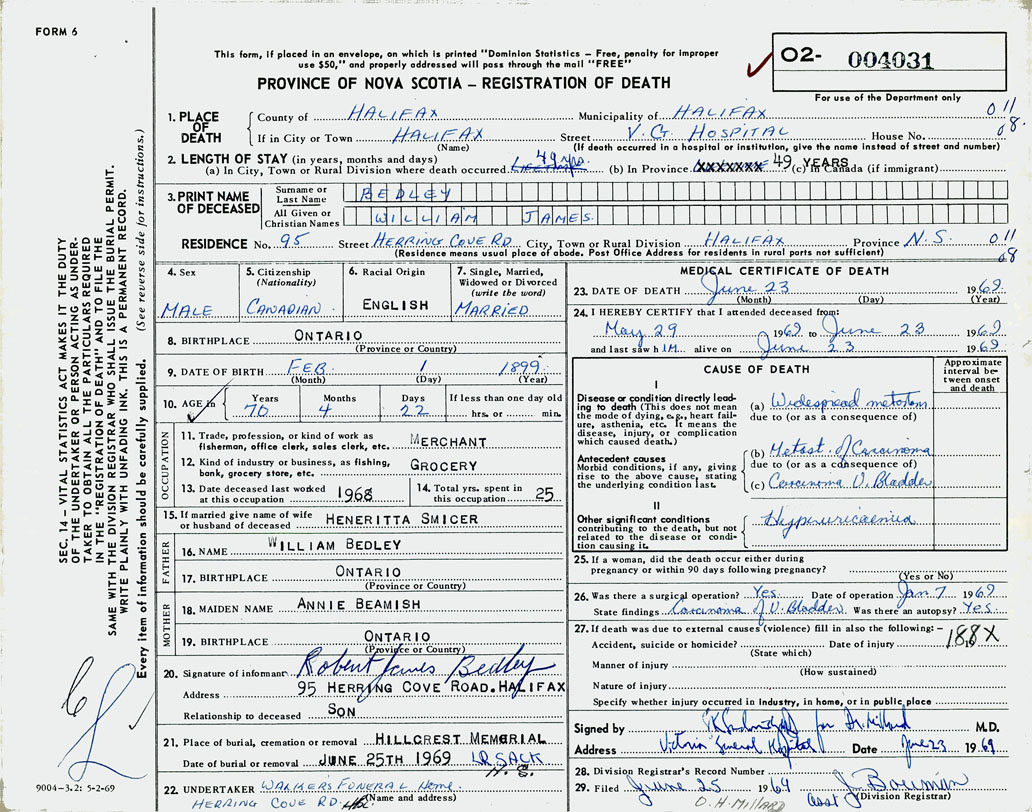 FORM 6
This form, if placed in an envelope, on which is printed "Dominion Statistics – Free, penalty for improper
use $50," and properly addressed will pass through the mail "FREE"
O2- 004031
PROVINCE OF NOVA SCOTIA – REGISTRATION OF DEATH
For use of the Department only
1. PLACE OF DEATH
County of HALIFAX Municipality of HALIFAX 011
If in City or Town HALIFAX Street V. G. HOSPITAL House No. 08.
(Name) (If death occurred in a hospital or institution, give the name instead of street and number)
2. LENGTH OF STAY (in years, months and days)
(a) In City, Town or Rural Division where death occurred 49 yrs. (b) In Province XXXXXXX 49 YEARS (c) In Canada (if immigrant)
3. PRINT NAME OF DECEASED
Surname or Last Name BEDLEY
All Given or Christian Names WILLIAM JAMES
RESIDENCE No. 95 Street HERRING COVE RD City, Town or Rural Division HALIFAX Province N.S. 011
(Residence means usual place of abode. Post Office Address for residents in rural parts not sufficient) 08
4. Sex MALE
5. Citizenship (Nationality) CANADIAN
6. Racial Origin ENGLISH
7. Single, Married, Widowed or Divorced (write the word) MARRIED
8. BIRTHPLACE ONTARIO
(Province or Country)
9. DATE OF BIRTH FEB. 1 1899
(Month) (Day) (Year)
10. AGE in Years 70 Months 4 Days 22 If less than one day old hrs. or min.
OCCUPATION
11. Trade, profession, or kind of work as fisherman, office clerk, sales clerk, etc. MERCHANT
12. Kind of industry or business, as fishing, bank, grocery store, etc. GROCERY
13. Date deceased last worked at this occupation 1968
14. Total yrs. spent in this occupation 25
15. If married give name of wife or husband of deceased HENERITTA SMICER
FATHER
16. NAME WILLIAM BEDLEY
17. BIRTHPLACE ONTARIO
(Province or Country)
MOTHER
18. MAIDEN NAME ANNIE BEAMISH
19. BIRTHPLACE ONTARIO
(Province or Country)
20. Signature of informant Robert James Bedley
Address 95 HERRING COVE ROAD. HALIFAX
Relationship to deceased SON
21. Place of burial, cremation or removal HILLCREST MEMORIAL
Date of burial or removal JUNE 25TH 1969 LR. SACK
N. S.
22. UNDERTAKER WALKER'S FUNERAL HOME
HERRING COVE RD. (Name and address)
MEDICAL CERTIFICATE OF DEATH
23. DATE OF DEATH June 23 1969
(Month) (Day) (Year)
24. I HEREBY CERTIFY that I attended deceased from:
May 29 1969 to June 23 1969
and last saw h IM alive on June 23 1969
CAUSE OF DEATH
Approximate interval between onset and death
I
Disease or condition directly leading to death (This does not mean the mode of dying, e.g., heart failure, asthenia, etc. It means the disease, injury, or complication which caused death.)
(a) Widespread
due to (or as a consequence of)
Antecedent causes
Morbid conditions, if any, giving rise to the above cause, stating the underlying condition last.
(b) Metast. of Carcinoma
due to (or as a consequence of)
(c) Carcinoma U. Bladder
II
Other significant conditions contributing to the death, but not related to the disease or condition causing it.
Hyperuricaemia
25. If a woman, did the death occur either during pregnancy or within 90 days following pregnancy?
(Yes or No)
26. Was there a surgical operation? Yes Date of operation Jan 7 1969
State findings Carcinoma of U. Bladder Was there an autopsy? Yes.
27. If death was due to external causes (violence) fill in also the following: – 188X
Accident, suicide or homicide? Date of injury 19
(State which)
Manner of injury
(How sustained)
Nature of injury
Specify whether injury occurred in industry, in home, or in public place
Signed by for Dr. Millard M.D.
Address Victoria General Hospital Date June 23 1969
28. Division Registrar's Record Number
29. Filed June 25 1969 J. Bowman
O. H. MILLARD Asst (Division Registrar)
SEC. 14 – VITAL STATISTICS ACT MAKES IT THE DUTY
OF THE UNDERTAKER OR PERSON ACTING AS UNDER-
TAKER TO OBTAIN ALL THE PARTICULARS REQUIRED
IN THE "REGISTRATION OF DEATH" AND TO FILE THE
SAME WITH THE DIVISION REGISTRAR WHO SHALL ISSUE THE BURIAL PERMIT.
WRITE PLAINLY WITH UNFADING INK. THIS IS A PERMANENT RECORD.
Every item of information should be carefully supplied. (See reverse side for instructions.)
9004–3.2: 5-2-69